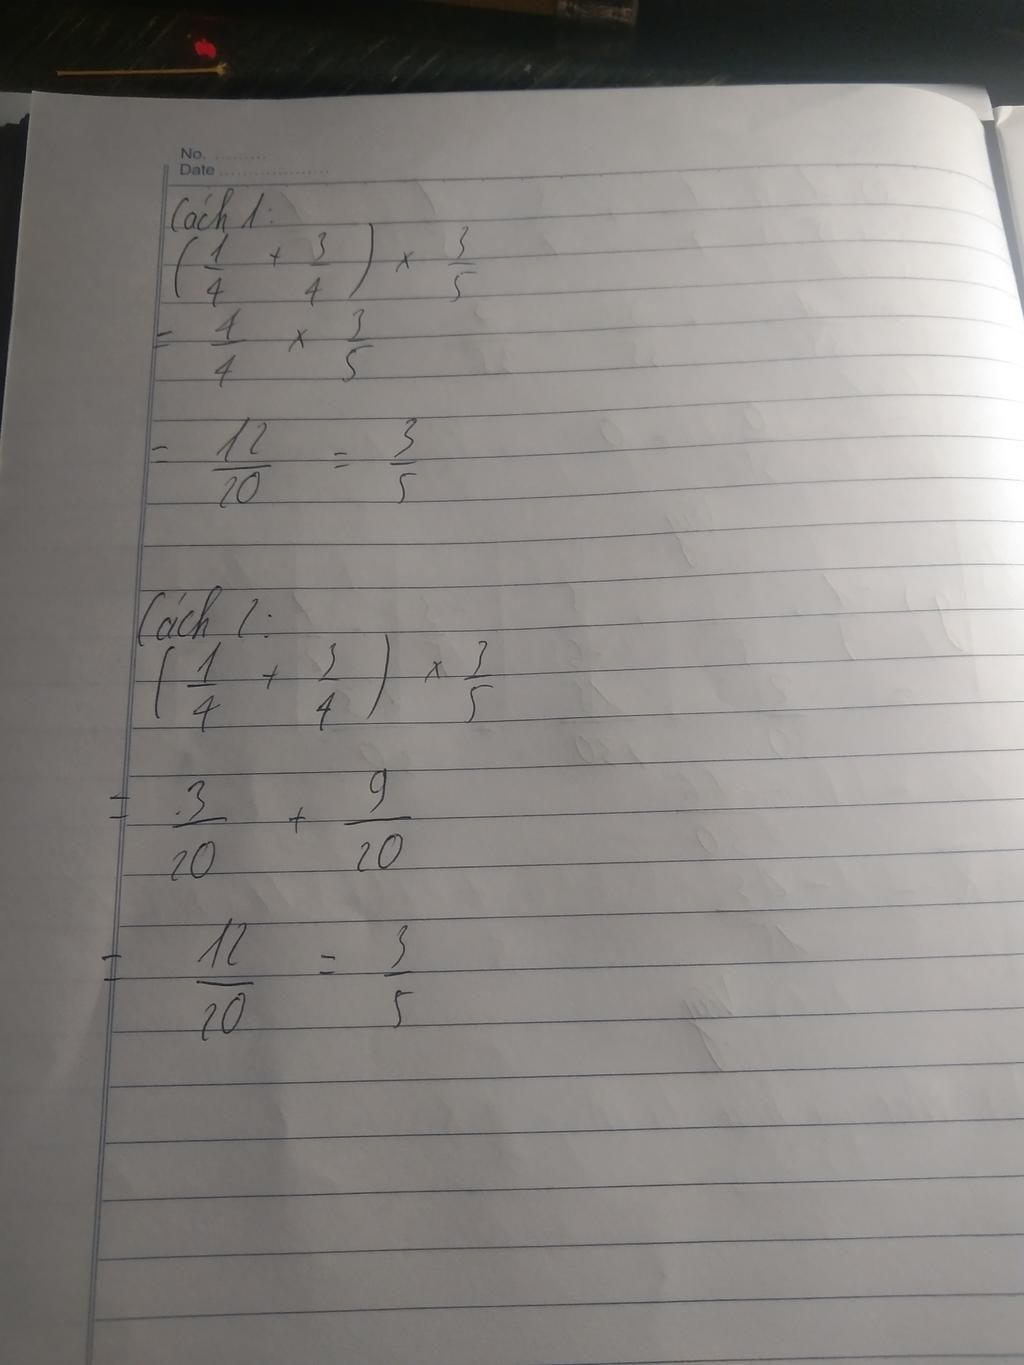 No. .........
Date ...................
Cách 1:
(1/4 + 3/4) × 3/5
= 4/4 × 3/5
= 12/20 = 3/5
Cách 2:
(1/4 + 3/4) × 3/5
= 3/20 + 9/20
= 12/20 = 3/5